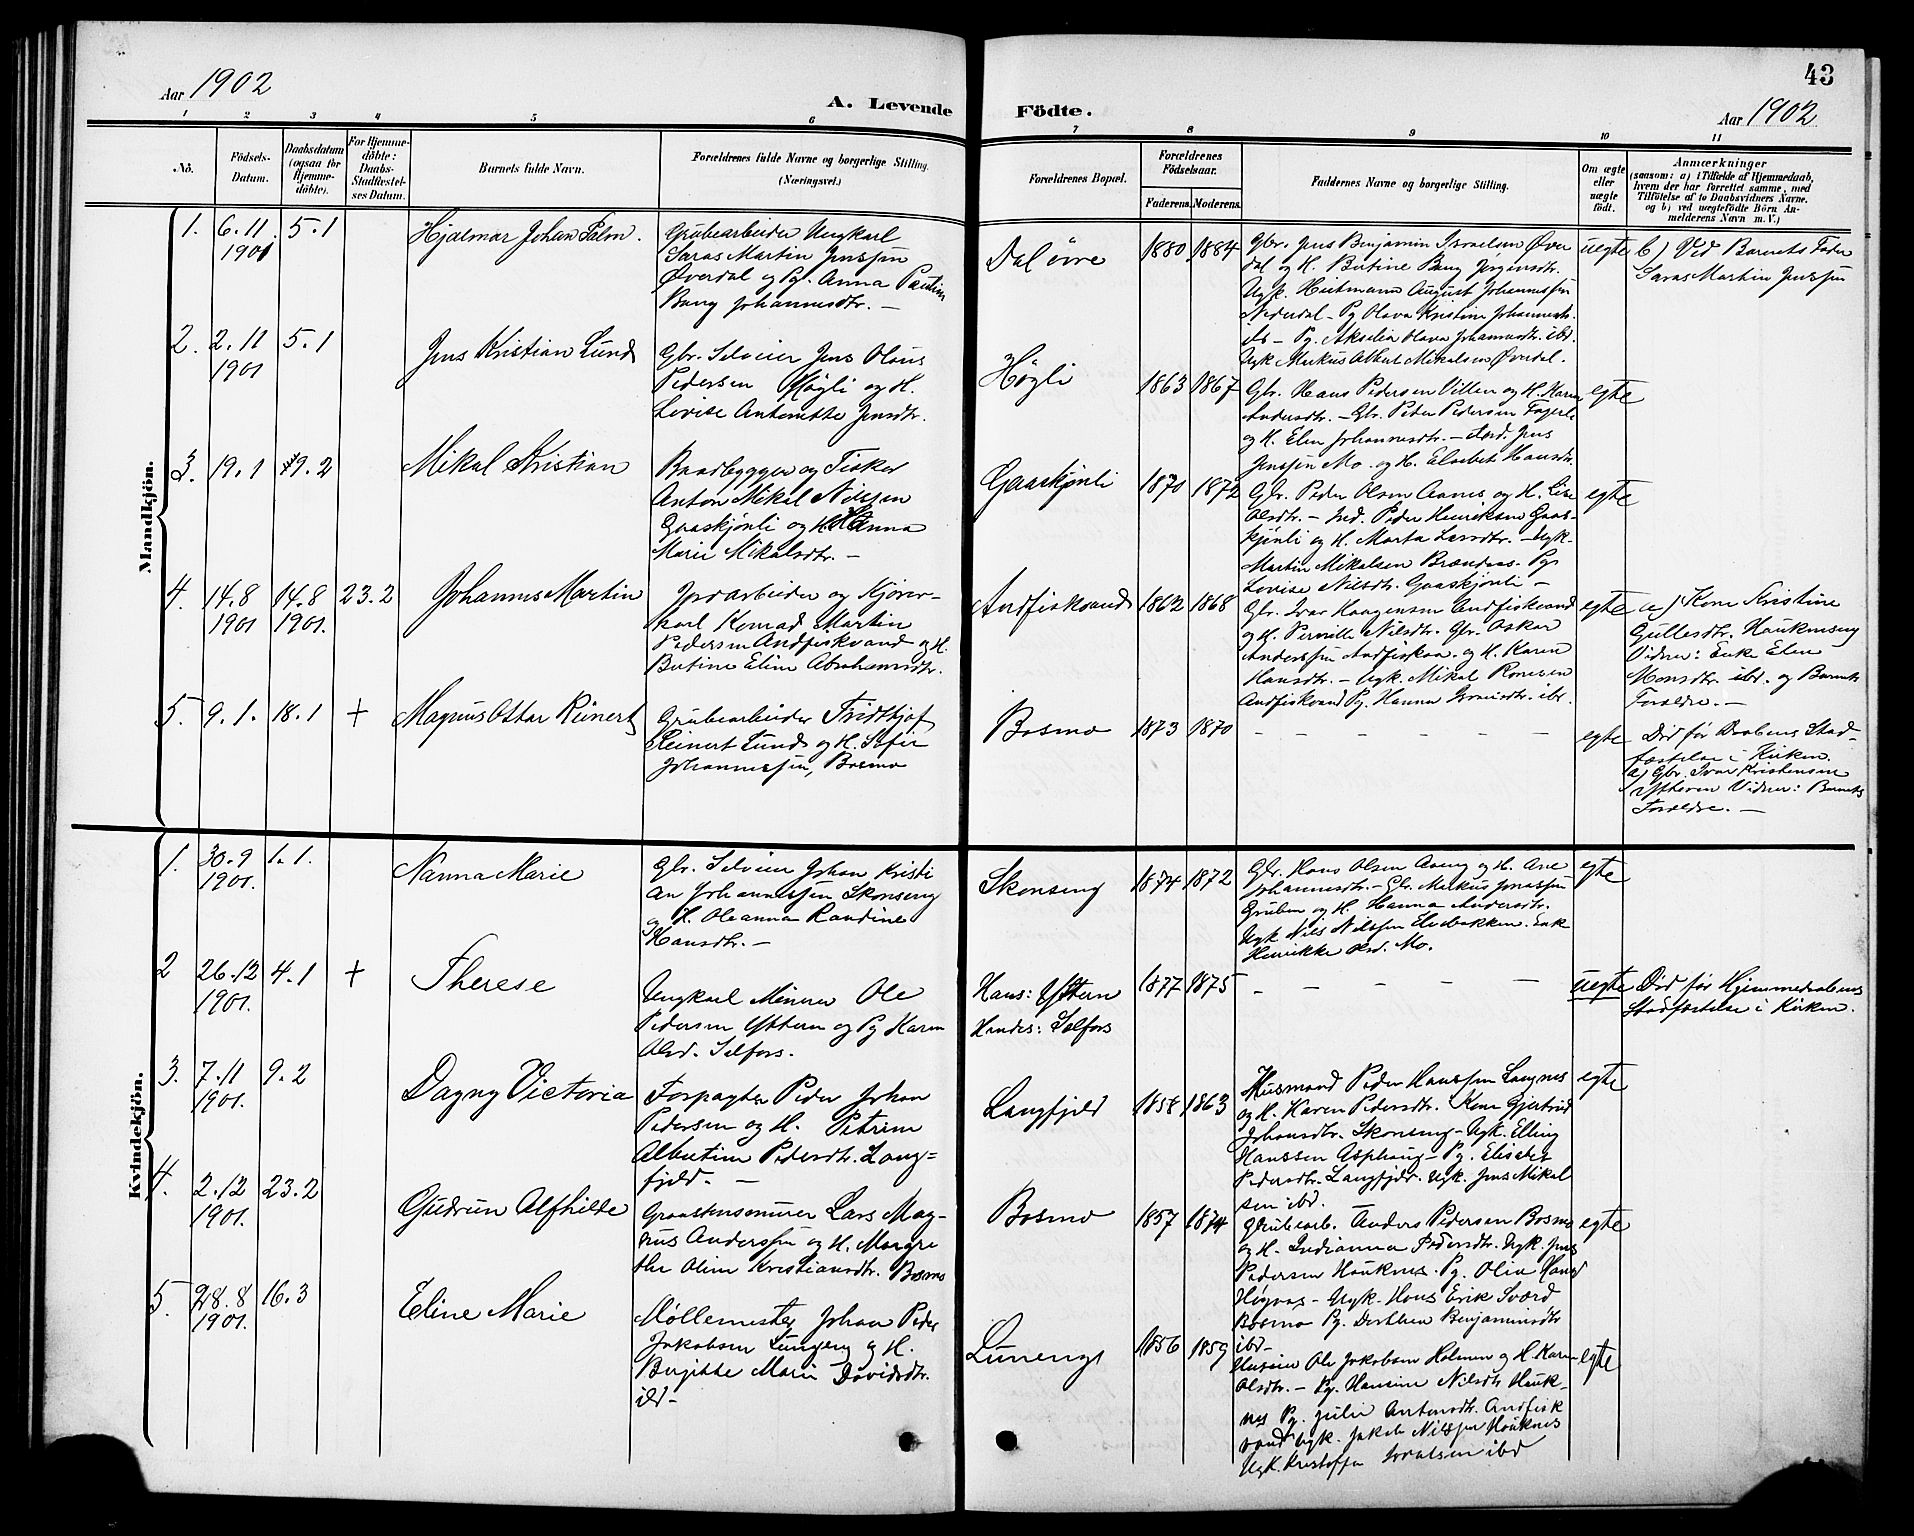 Aar 1902
A. Levende
Födte.
43
Aar 1902
1 2 3 4 5 6 7 8 9 10 11
No.
Födsels-
Datum.
Daabsdatum
(ogsaa for
Hjemme-
döbte).
For Hjemme-
döbte:
Daabs-
Stadfæstel-
ses Datum.
Barnets fulde Navn.
Forældrenes fulde Navne og borgerlige Stilling.
(Næringsvei.)
Forældrenes Bopæl.
Forældrenes
Födselsaar.
Faderens. Moderens.
Faddernes Navne og borgerlige Stilling.
Om ægte
eller
uægte
födt.
Anmærkninger
(saasom: a) i Tilfælde af Hjemmedaab,
hvem der har forrettet samme, med
Tilföielse af to Daabsvidners Navne.
og b) ved uægtefödte Börn An-
melderens Navn m. V.)
Mandkjön.
1. 6.11 1901 5.1
Hjalmar Johan Palm.
Grubearbeider Ungkarl
Saras Martin Jenssen
Øverdal og Pg. Anna Pauline
Bang Johannesdtr. —
Dal övre
1880 1884
Gbr. Jens Benjamin Israelsen Øver
dal og H. Butine Bang Jørgensdtr.
Ugk. Heitmann August Johannessen
Nederdal - Pg Olava Kristine Johannesdt.
ibd - Pg. Akselia Olava Johannesdtr. ibd.
Ugk Markus Albert Mikalsen Øverdal.
uegte
b) Ved Barnets Fader
Saras Martin Jenssen
2. 2.11 1901 5.1
Jens Kristian Lund
Gbr. Selveier Jens Olaus
Pedersen Høgli og H.
Lovise Antonette Jensdtr.
Høgli
1863 1867
Gbr. Hans Pedersen Villen og H. Karen
Andersdtr. - Gbr. Peder Pedersen Fagerli
og H. Elen Johannesdtr. - Jens
Jenssen Mo. og H. Elsebet Hansdtr.
egte
3. 19.1 9.2
Mikal Kristian
Baadbygger og Fisker
Anton Mikal Nilssen
Gaaskjønli og H. Anna
Marie Mikalsdtr. —
Gaaskjønli
1870 1872
Gbr. Peder Olsen Aanes og H. Lise
Olsdtr. - Ind. Peder Henriksen Gaas-
kjønli og H. Marta Larsdtr. - Ugk.
Martin Mikalsen Brændaas. Pg.
Lovise Nilsdtr. Gaaskjønli -
egte
4. 14.8 1901 14.8 1901. 23.2
Johannes Martin
Jordarbeider og Kjøre-
karl Konrad Martin
Pedersen Andfiskvand og H.
Butine Eline Abrahamsdtr.
Andfiskvand
1862 1868
Gbr. Ivar Haagensen Andfiskvand
og H. Pernille Nilsdtr. Gbr. Oskar
Anderssen Andfiskaa. og H. Karen
Hansdtr. - Ugk. Mikal Ronesen
Andfiskvand Pg. Hanna ibd.
egte
a) Kone Kristine
Gullesdtr. Hauknes
Vidner: Enke Elen
Monsdtr ibd. og Barnets
Forældre. —
5. 9.1. 18.1 +
Magnus Ottar Reinert
Grubearbeider Fridtjof
Reinert Lund og H. Sofie
Johannessen, Bosmo
Bosmo
1873 1870
— — — — — —
egte
Død før Daabens Stad-
fæstelse i Kirken.
a) Gbr. Ivar Kristensen
Ytteren Vidner: Barnets
Forældre. —
Kvindekjön.
1. 30.9 1901. 1.1.
Nanna Marie
Gbr. Selveier Johan Kristi
an Johannessen Skonseng
og H. Oleanna Randine
Hansdtr. —
Skonseng
1874 1872
Gbr. Hans Olsen Aaeng og H. Ane
Johannesdtr. - Gbr. Markus Jonassen
Gruben og H. Hanna Andersdtr.
Ugk Nils Nilssen Elvebakken. Enk
Henrikke Olsd. Mo.
egte
2 26.12 1901. 4.1 +
Therese
Ungkarl Minerer Ole
Pedersen Ytteren og Pg Karen
Olsd. Selfors.
Hans: Ytteren
Hendes: Selfors
1877 1875
— — — — — —
uegte
Død før Hjemmedaabens
Stadfæstelse i Kirken.
3. 7.11 1901. 9.2
Dagny Victoria
Forpagter Peder Johan
Pedersen og H. Petrine
Albertine Pedersdtr. Lang-
fjeld. —
Langfjeld
1858 1863
Husmand Peder Hanssen Langnes
og H. Karen Pedersdtr. Kone Gjertrud
Johansdtr. Skonseng - Ugk. Elling
Hanssen Asphaug - Pg. Elisabet
Pedersdtr. Langfjeld. Ugk. Jens Mikal
sen ibd.
egte
4. 2.12 1901. 23.2
Gudrun Alfhilde
Graastensmurer Lars Mag-
nus Anderssen og H. Margre
the Oline Kristiansdtr. Bosmo
Bosmo
1857 1874
Grubearb. Anders Pedersen Bosmo
og H. Indianna Pedersdtr. Ugk. Jens
Pedersen Hauknes. Pg. Olin Hansd
Høgaas - Ugk. Hans Erik Sværd
Bosmo Pg. Dorthea Benjaminsdtr
ibd-
egte
5. 28.8 1901. 16.3
Eline Marie
Møllemester Johan Peder
Jakobsen Luneng og H.
Birgitte Marie Davidsdtr.
ibd-
Luneng
1856 1859
Huseier Ole Jakobsen Holmen og H. Karen
Olsdtr. - Pg. Hansine Nilsdtr Hauk-
nes Pg. Julie Antonsdtr. Andfisk
vand Ugk. Jakob Nilssen Hauknes
Ugk. Kristoffer ibd
egte